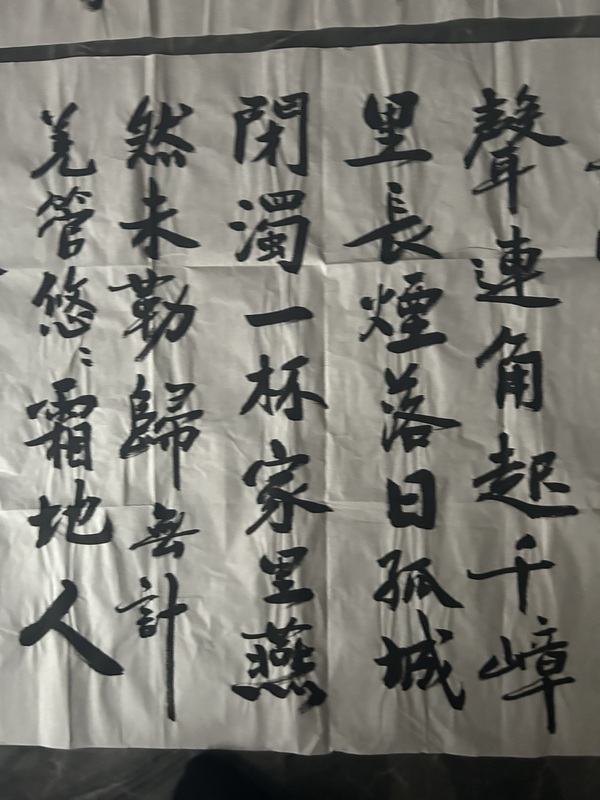 聲連角起千嶂
里長煙落日孤城
閉濁一杯家里燕
然未勒歸無計
羌管悠〻霜地人